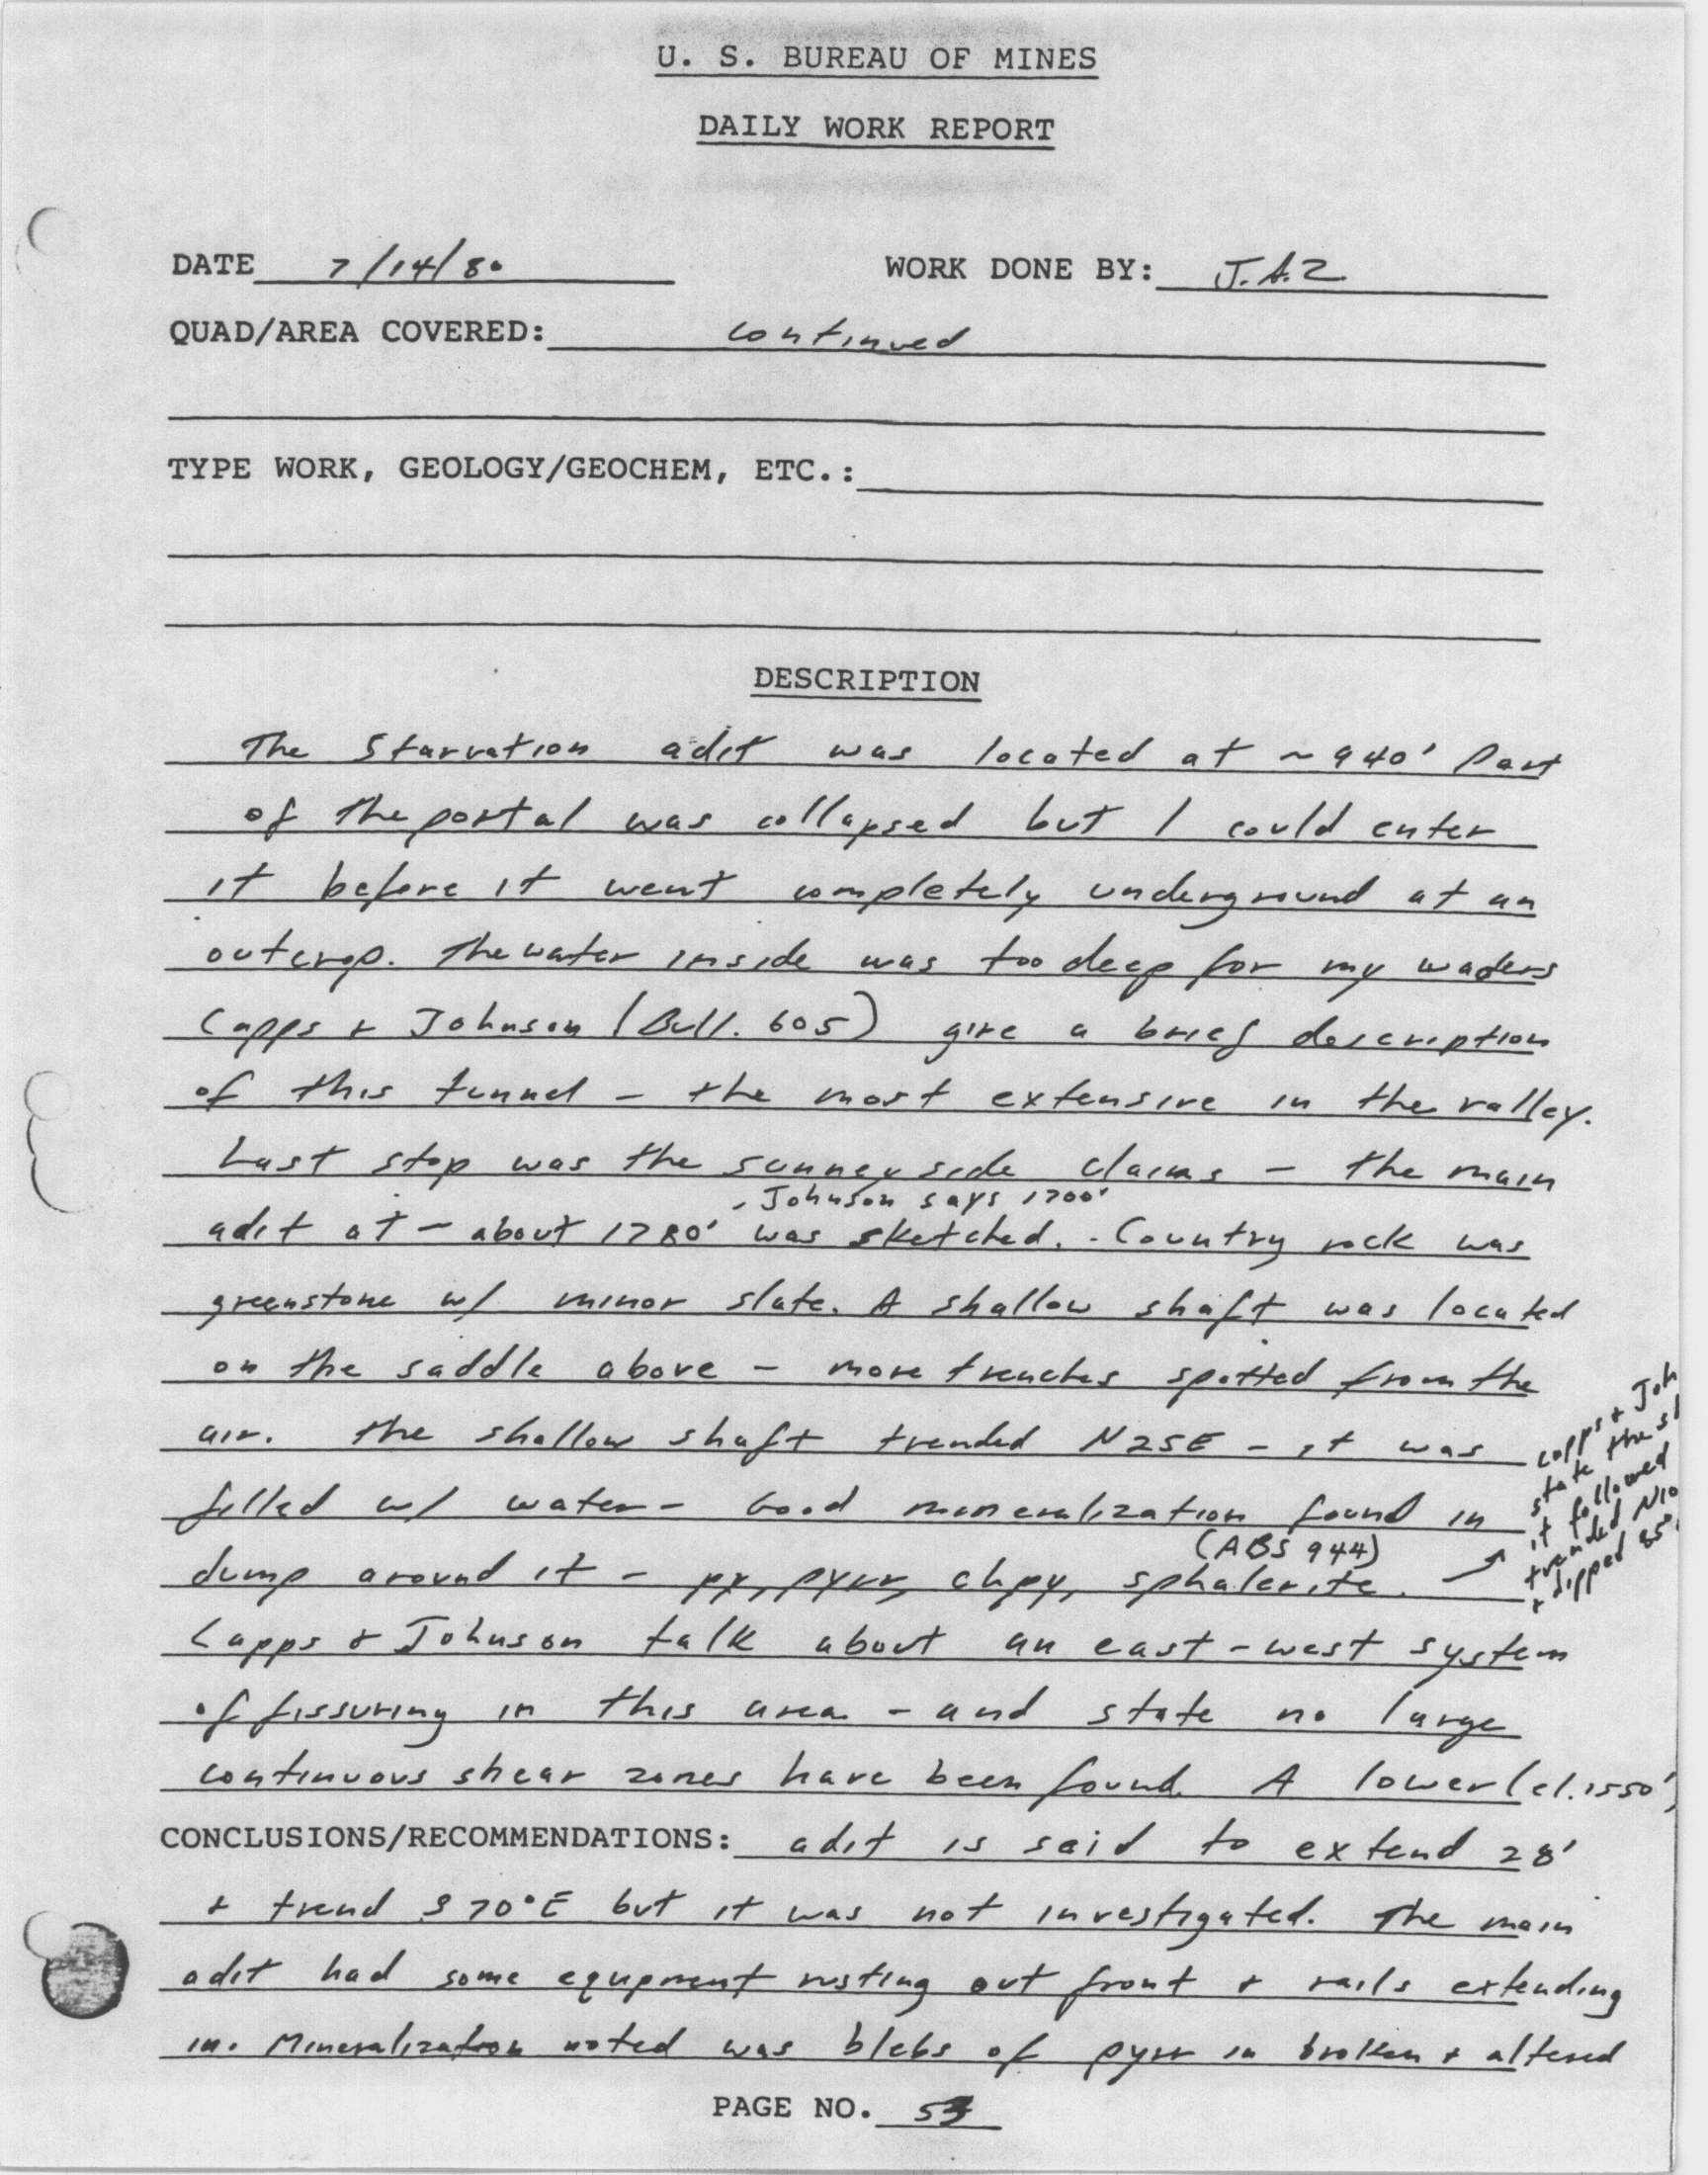 U. S. BUREAU OF MINES
DAILY WORK REPORT
DATE 7/14/80 WORK DONE BY: J.A.Z
QUAD/AREA COVERED: continued
TYPE WORK, GEOLOGY/GEOCHEM, ETC.:
DESCRIPTION
The Starvation adit was located at ~ 940' Part
of the portal was collapsed but I could enter
it before it went completely underground at an
outcrop. The water inside was too deep for my waders
Capps & Johnson (Bull. 605) give a brief description
of this tunnel - the most extensive in the valley.
Last stop was the sunneyside claims - the main
, Johnson says 1700'
adit at - about 1780' was sketched. - Country rock was
greenstone w/ minor slate. A shallow shaft was located
on the saddle above - more trenches spotted from the
air. the shallow shaft trended N25E - it was
filled w/ water - Good mineralization found in
(ABS 944)
dump around it - py, pyrr, chpy, sphalerite.
capps & Joh
state the s
it followed
trended N10
& dipped 85°
Capps & Johnson talk about an east-west system
of fissuring in this area - and state no large
continuous shear zones have been found. A lower (el. 1550')
CONCLUSIONS/RECOMMENDATIONS: adit is said to extend 28'
& trend S70°E but it was not investigated. The main
adit had some equpment rusting out front & rails extending
in. Mineralization noted was blebs of pyrr in broken & altered
PAGE NO. 53